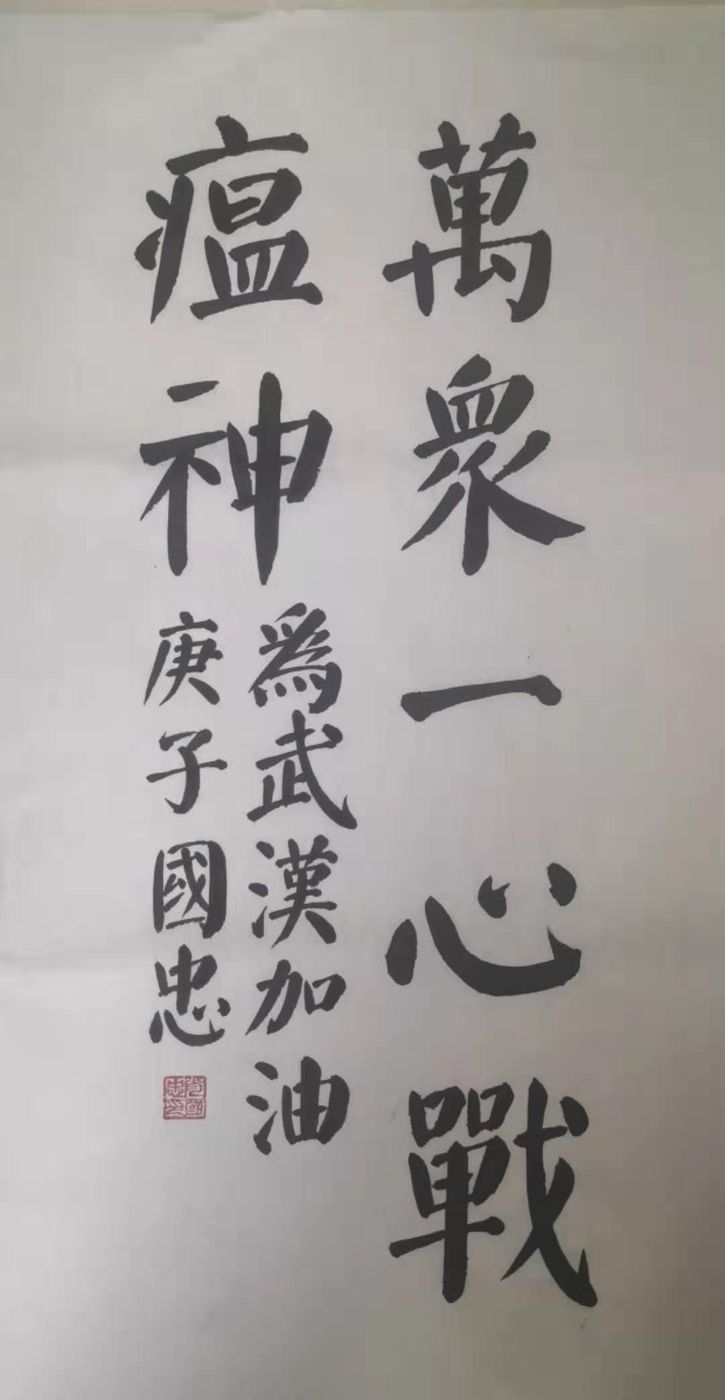 萬眾一心戰
瘟神
爲武漢加油
庚子國忠